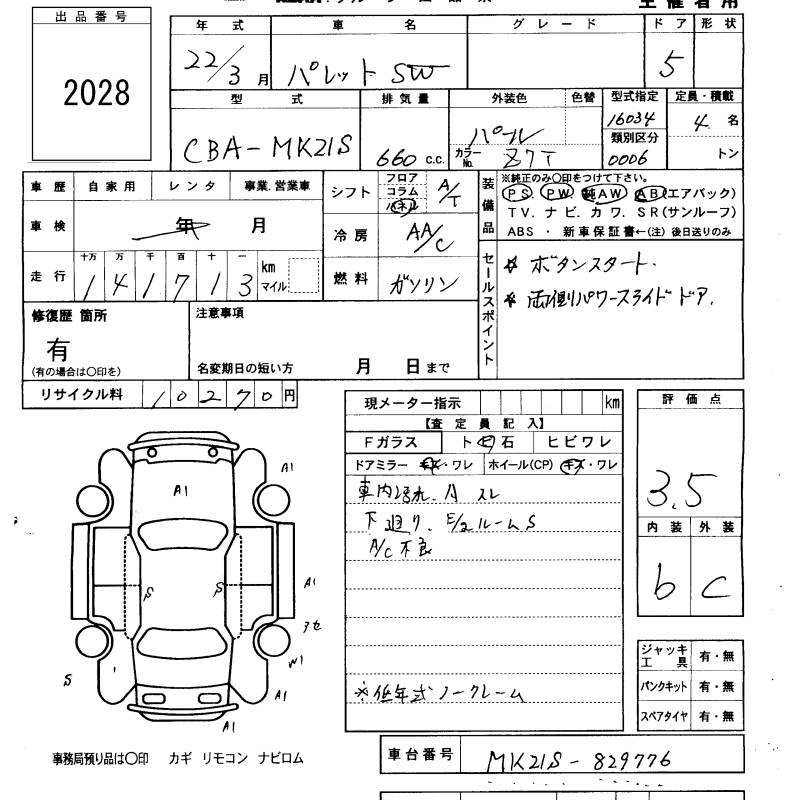 出品番号
2028
年式 車名 グレード ドア 形状
22/3月 パレットSW 5
型式 排気量 外装色 色替 型式指定 定員・積載
CBA-MK21S 660 c.c. パール カラーNo. Z7T 16034 4 名
類別区分
0006 トン
車歴 自家用 レンタ 事業.営業車
車検 年 月
走行 十万 万 千 百 十 一
141713 km マイル
シフト フロア コラム パネル A/T
冷房 AA/C
燃料 ガソリン
装備品
※純正のみ○印をつけて下さい。
PS. PW. 純AW. AB(エアバック)
TV. ナビ. カワ. SR(サンルーフ)
ABS ・ 新車保証書←(注) 後日送りのみ
セールスポイント
☆ ボタンスタート.
☆ 両側パワースライドドア.
修復歴 箇所
有
(有の場合は○印を)
注意事項
名変期日の短い方 月 日まで
リサイクル料 10270円
現メーター指示 km
【査定員記入】
Fガラス ト ビ 石 ヒビワレ
ドアミラー キズ・ワレ ホイール(CP) キズ・ワレ
車内汚れ. スレ
下廻り. E/gルームS
A/C不良
※低年式ノークレーム
評価点
3.5
内装 外装
b C
ジャッキ工具 有・無
パンクキット 有・無
スペアタイヤ 有・無
A1
A1
S
S
A1
アセ
W1
S
A1
A1
事務局預り品は○印 カギ リモコン ナビロム
車台番号 MK21S-829776